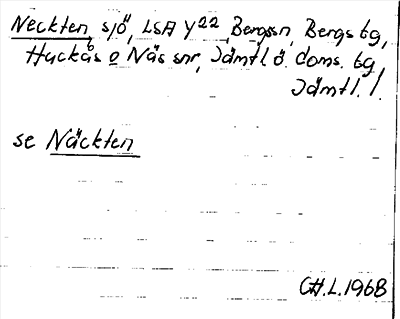 Neckten, sjö, LSA Y22, Bergssn, Bergs tg,
Hackås o Näs snr, Jämtl ö. doms. tg,
Jämtl. l.
se Näckten
CH.L.1968